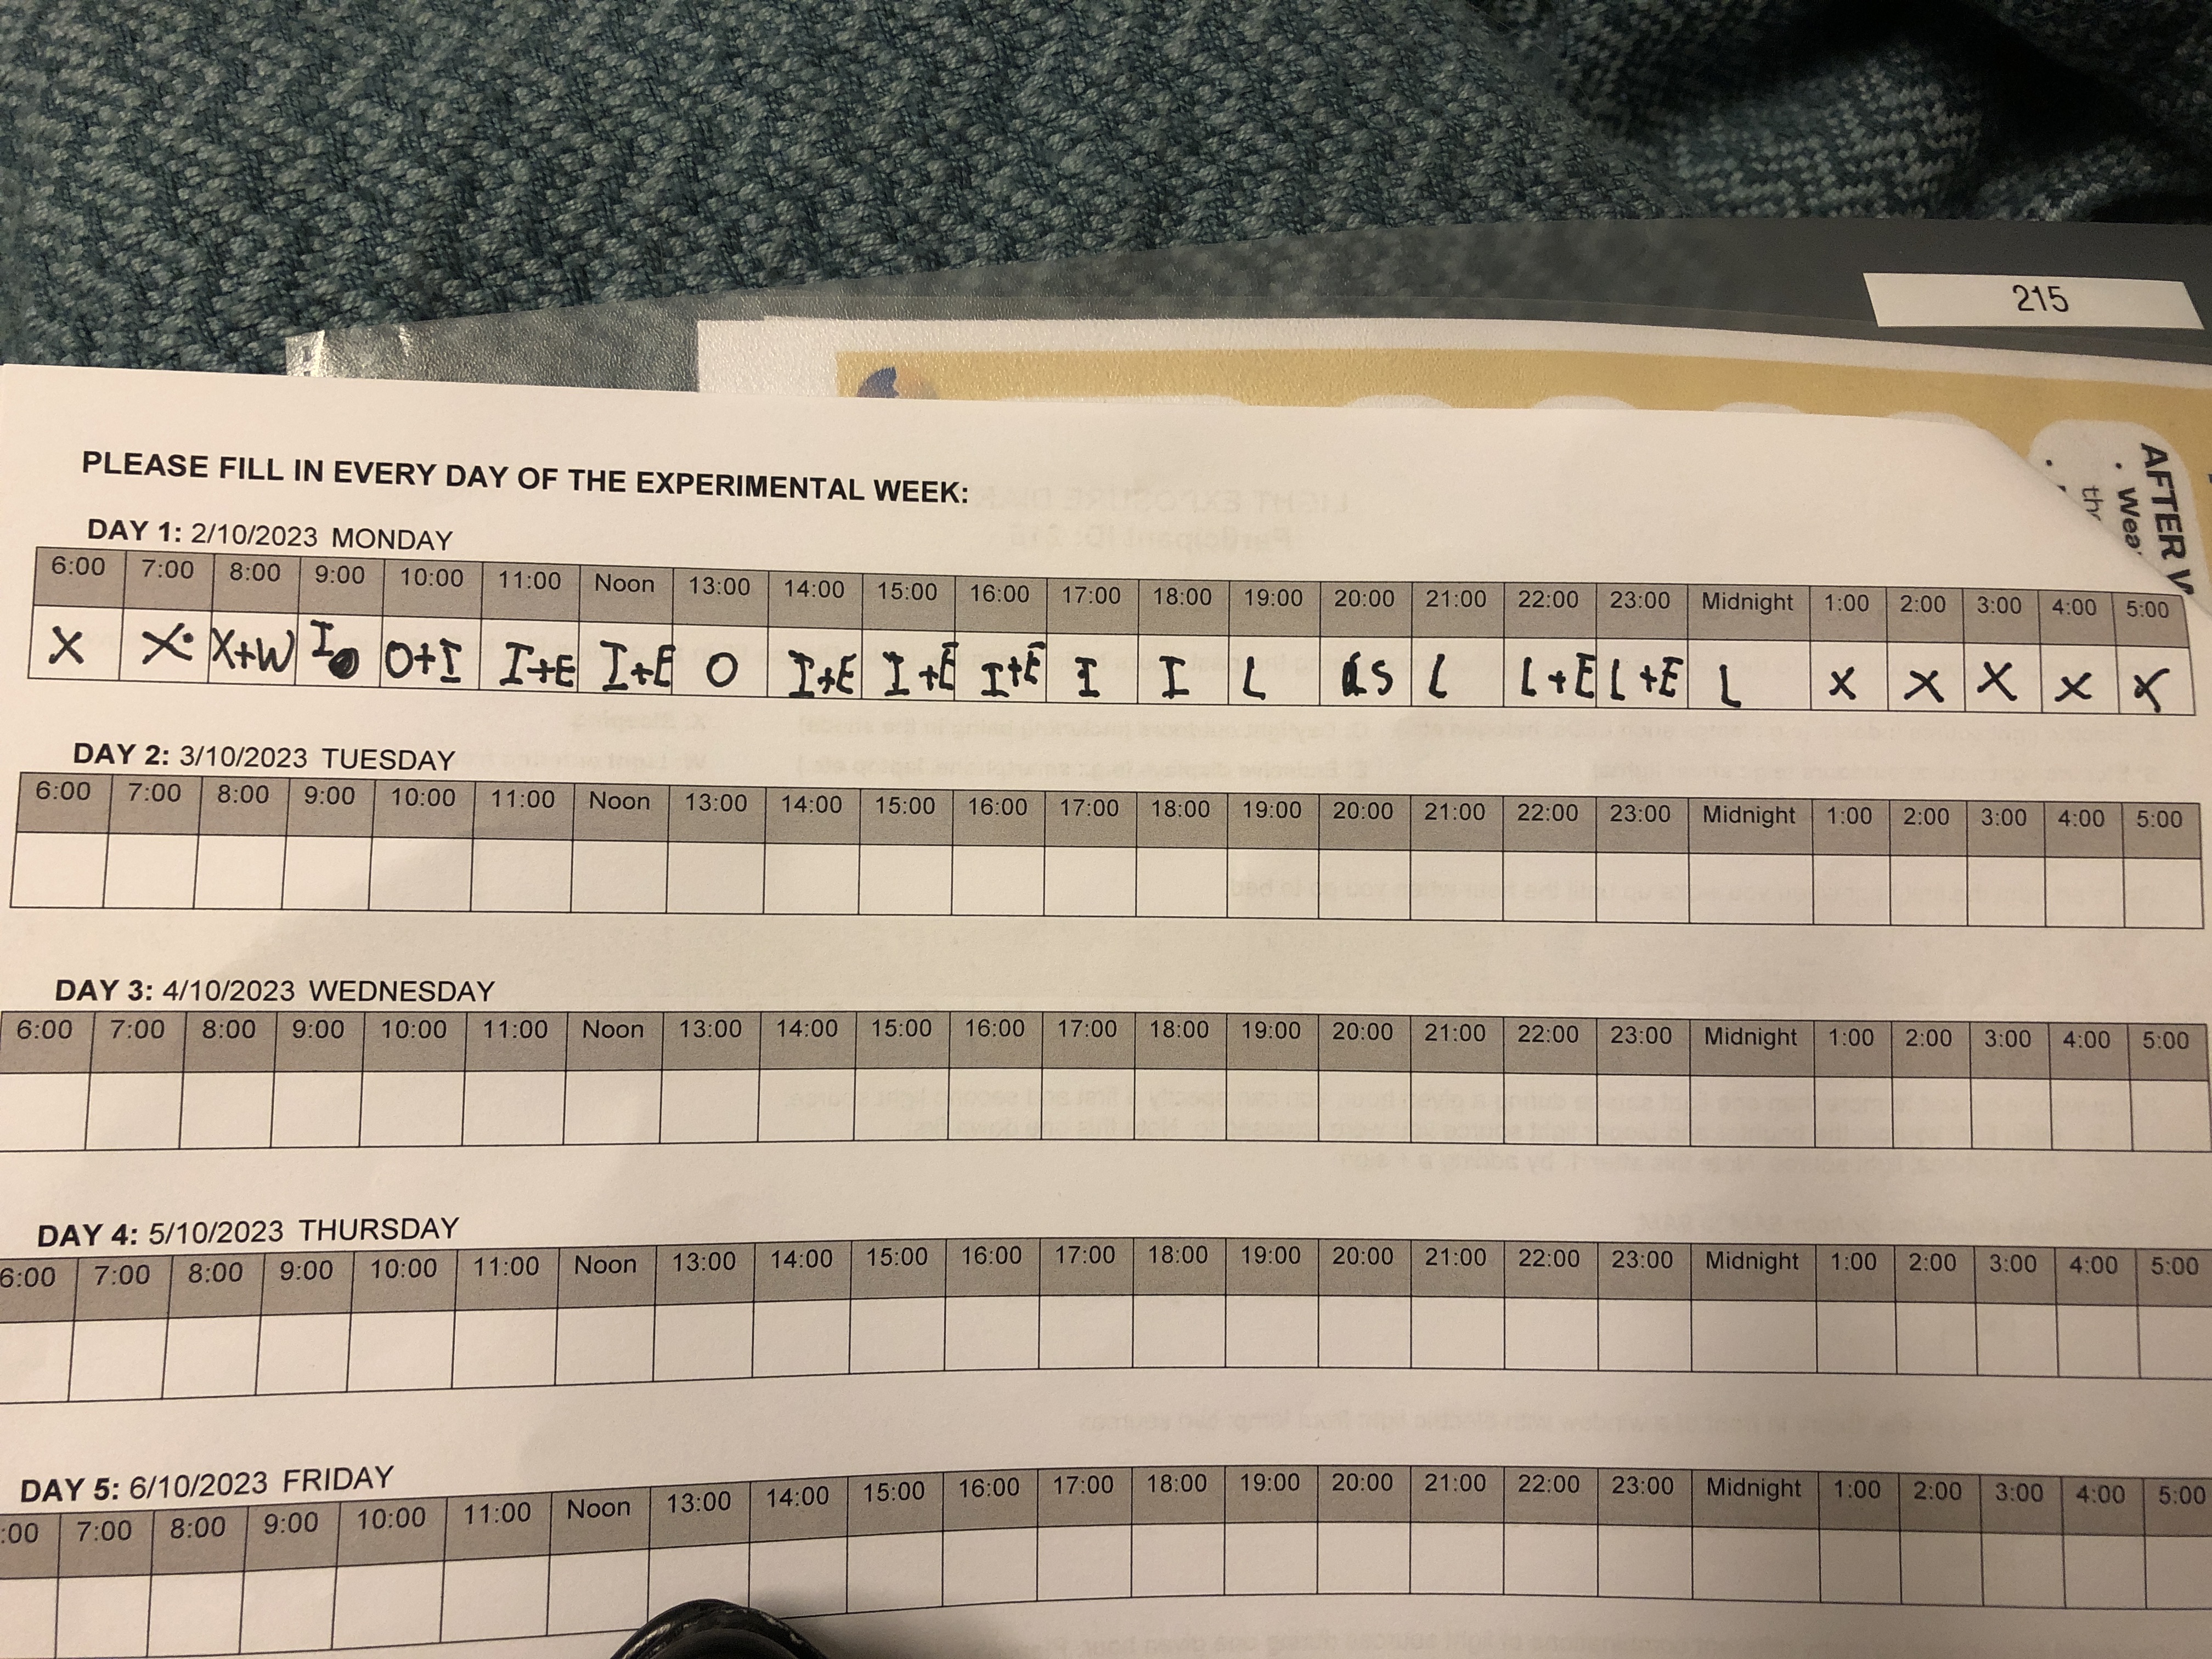 PLEASE FILL IN EVERY DAY OF THE EXPERIMENTAL WEEK:
DAY 1: 2/10/2023 MONDAY
6:00 7:00 8:00 9:00 10:00 11:00 Noon 13:00 14:00 15:00 16:00 17:00 18:00 19:00 20:00 21:00 22:00 23:00 Midnight 1:00 2:00 3:00 4:00 5:00
X X X+W I O+I I+E I+E O I+E I+E I+E I I L L L+E L+E L X X X X X
DAY 2: 3/10/2023 TUESDAY
6:00 7:00 8:00 9:00 10:00 11:00 Noon 13:00 14:00 15:00 16:00 17:00 18:00 19:00 20:00 21:00 22:00 23:00 Midnight 1:00 2:00 3:00 4:00 5:00
DAY 3: 4/10/2023 WEDNESDAY
6:00 7:00 8:00 9:00 10:00 11:00 Noon 13:00 14:00 15:00 16:00 17:00 18:00 19:00 20:00 21:00 22:00 23:00 Midnight 1:00 2:00 3:00 4:00 5:00
DAY 4: 5/10/2023 THURSDAY
6:00 7:00 8:00 9:00 10:00 11:00 Noon 13:00 14:00 15:00 16:00 17:00 18:00 19:00 20:00 21:00 22:00 23:00 Midnight 1:00 2:00 3:00 4:00 5:00
DAY 5: 6/10/2023 FRIDAY
:00 7:00 8:00 9:00 10:00 11:00 Noon 13:00 14:00 15:00 16:00 17:00 18:00 19:00 20:00 21:00 22:00 23:00 Midnight 1:00 2:00 3:00 4:00 5:00
215
AFTER
Wea